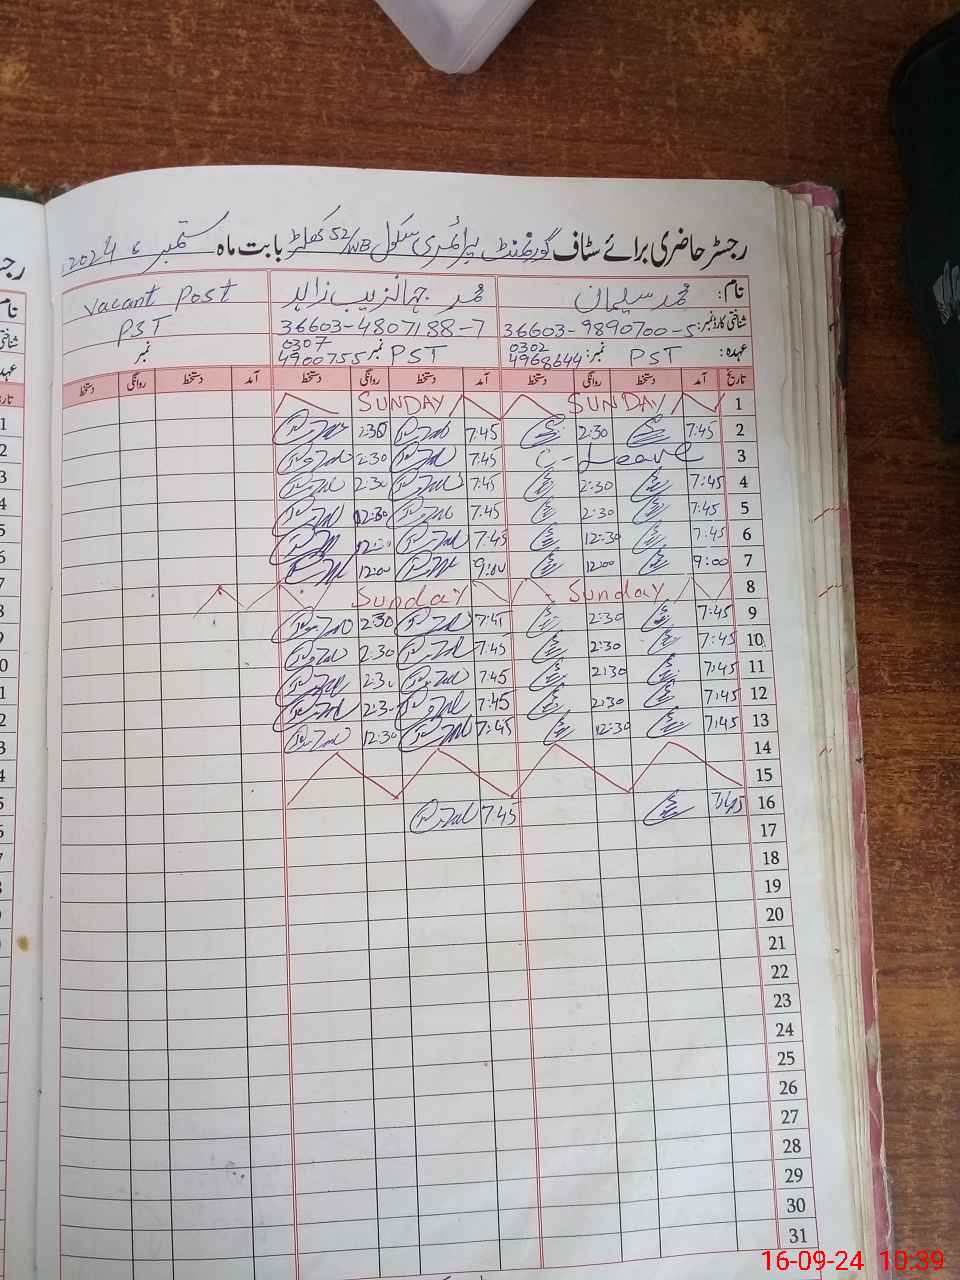 رجسٹر حاضری برائے سٹاف گورنمنٹ پرائمری سکول 52/WB کھلڑ بابت ماہ ستمبر 2024ء
نام: محمد سلیمان محمد جہانزیب زاہد Vacant Post
شناختی کارڈ نمبر: 36603-9890700-5 36603-4807188-7 PST
عہدہ: PST نمبر: 0302 4968644 PST نمبر 0307 4900755 نمبر
تاریخ آمد دستخط روانگی دستخط آمد دستخط روانگی دستخط آمد دستخط روانگی دستخط
1 SUNDAY SUNDAY
2 7:45 2:30 7:45 2:30
3 C-Leave 7:45 2:30
4 7:45 2:30 7:45 2:30
5 7:45 2:30 7:45 12:30
6 7:45 12:30 7:45 12:30
7 9:00 12:00 9:00 12:00
8 Sunday Sunday
9 7:45 2:30 7:45 2:30
10 7:45 2:30 7:45 2:30
11 7:45 2:30 7:45 2:30
12 7:45 2:30 7:45 2:30
13 7:45 12:30 7:45 12:30
14
15
16 7:45 7:45
17
18
19
20
21
22
23
24
25
26
27
28
29
30
31
16-09-24 10:39